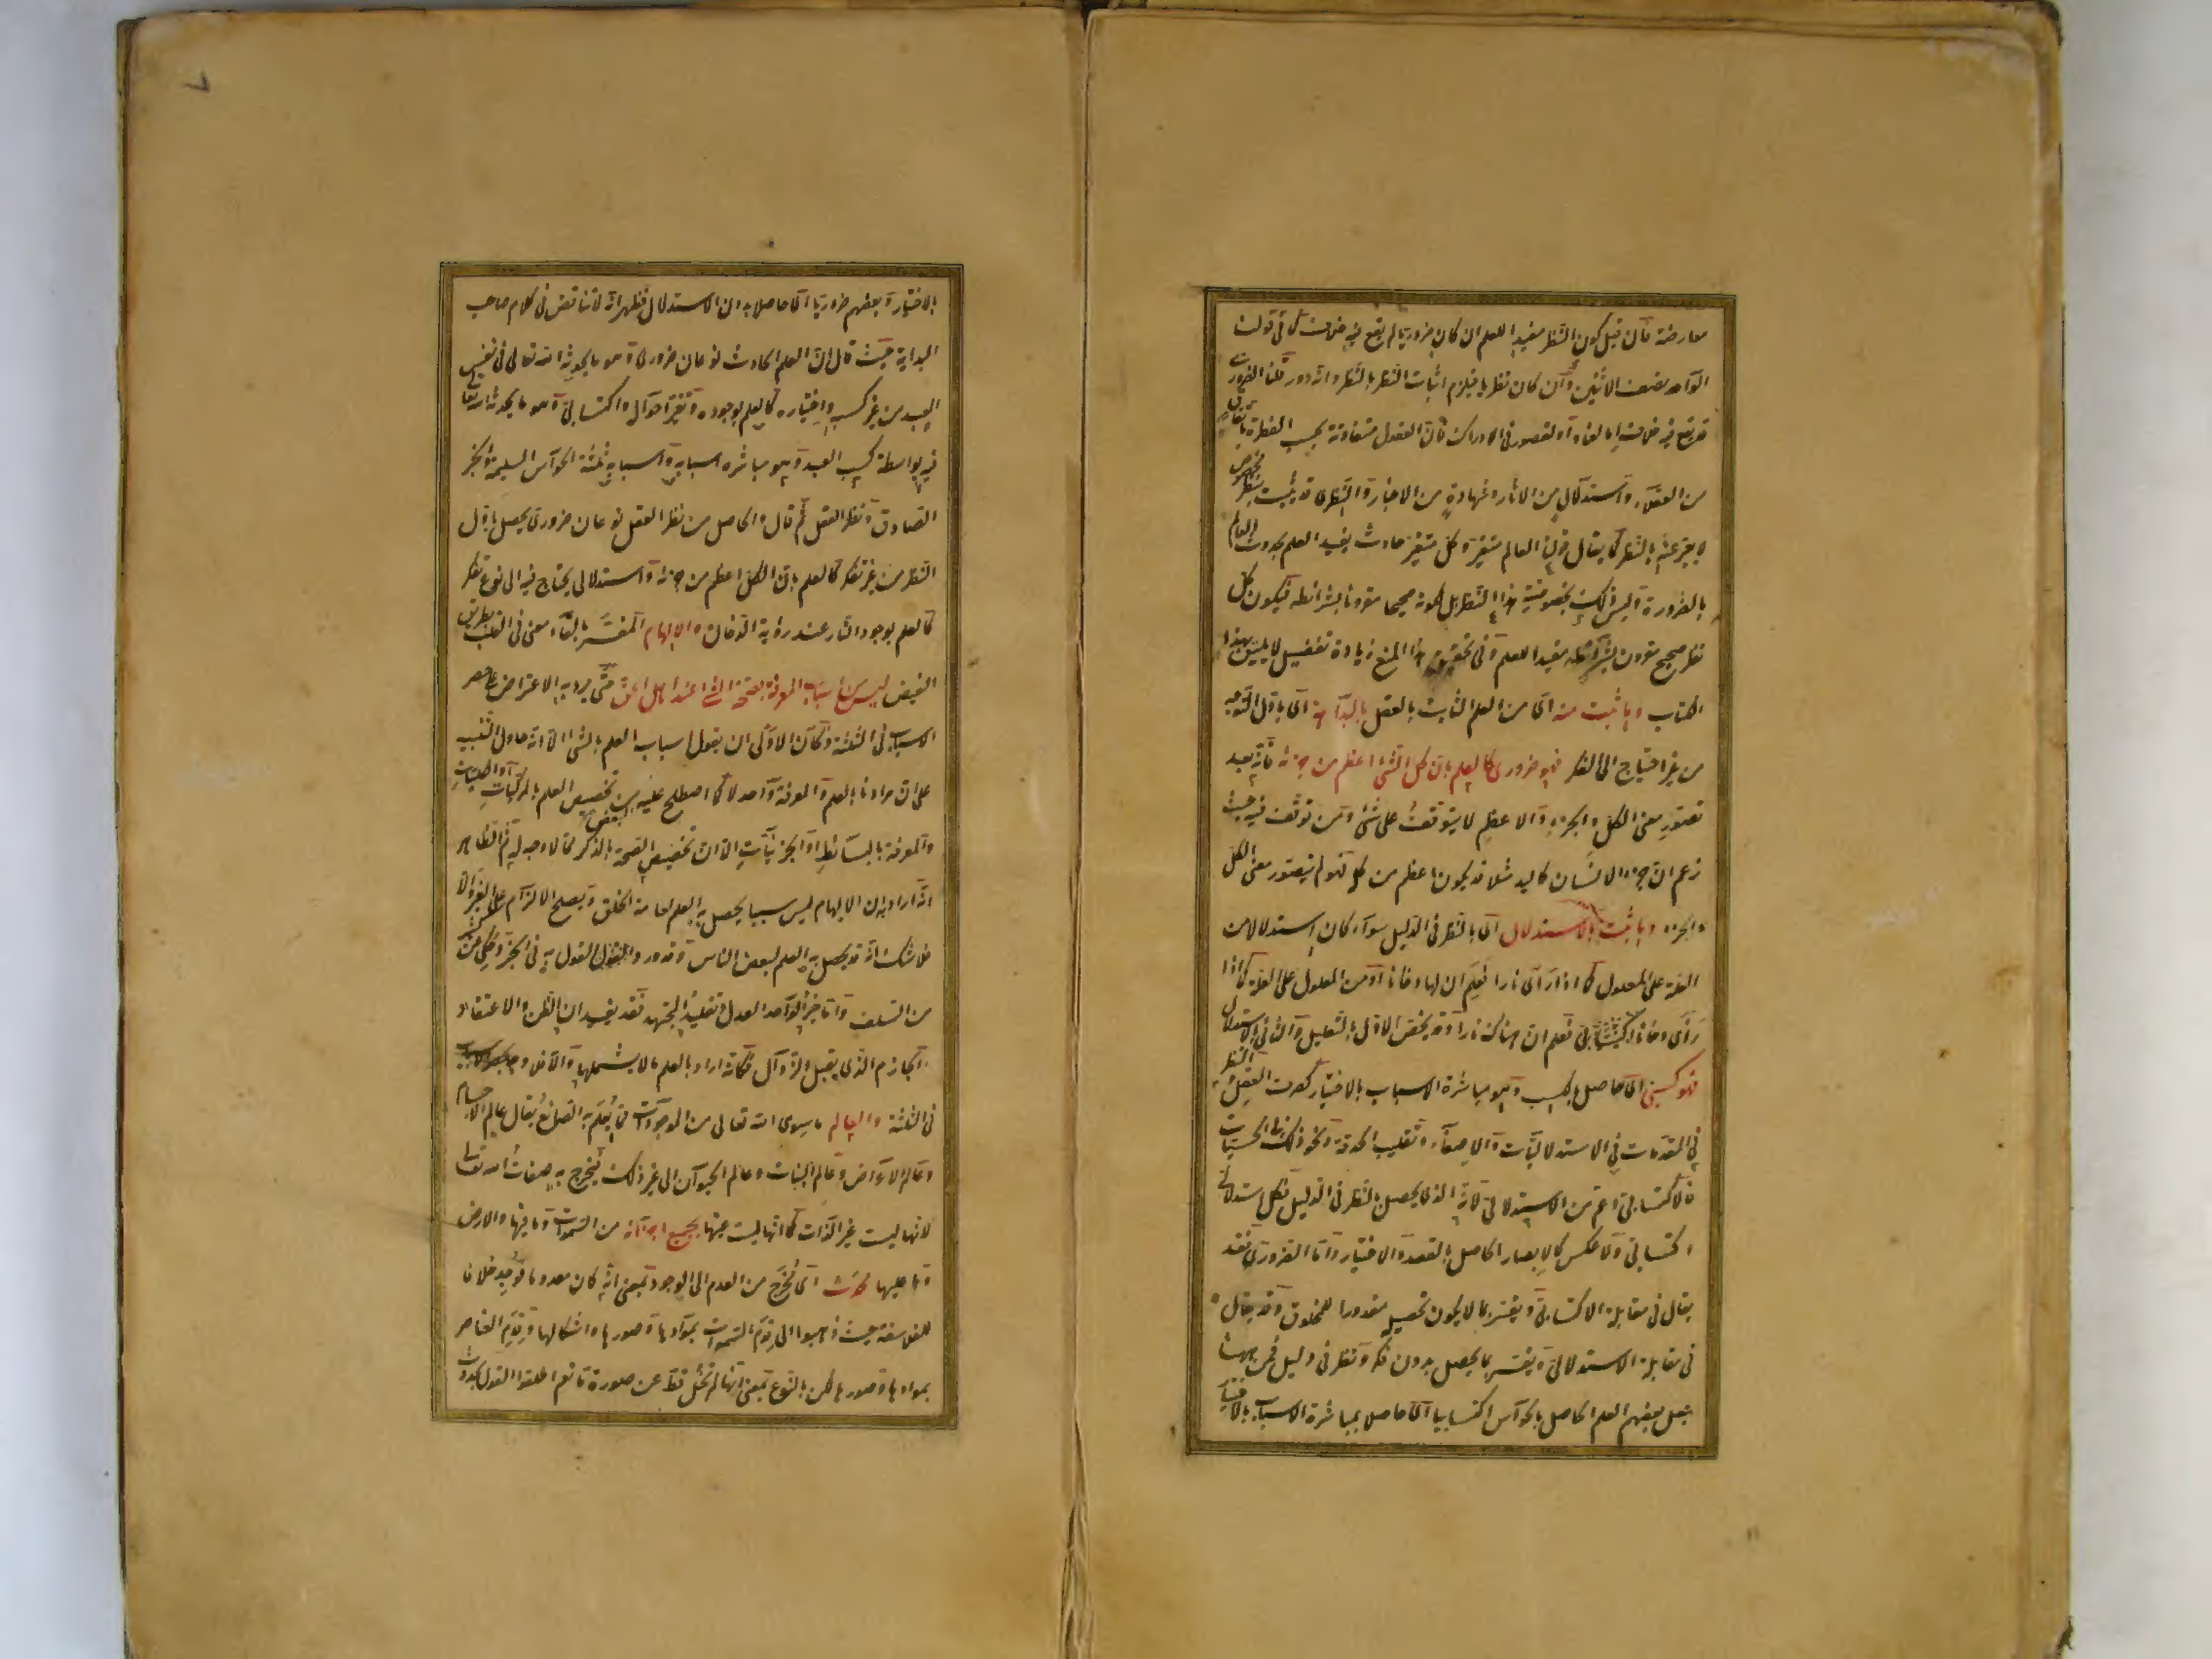 معارضة فان قيل كون النظر مفيدا للعلم ان كان ضروريا لم يقع فيه خلاف كما في قولنا
الواحد نصف الاثنين وان كان نظريا فيلزم اثبات النظر بالنظر وانه دور قلنا الضروري
قد يقع فيه خلاف اما لعناد او لقصور في الادراك فان العقول متفاوتة بحسب الفطرة باتفاق
من العقلاء واستدلال من الاثار وشهادة من الاخبار والنظري قد يثبت بنظر مخصوص
لا يعبر عنه بالنظر كما يقال قولنا العالم متغير وكل متغير حادث يفيد العلم بحدوث العالم
بالضرورة وليس ذلك بخصوصية هذا النظر بل لكونه صحيحا مقرونا بشرائطه فيكون كل
نظر صحيح مقرون بشرائطه مفيدا للعلم وفي تحقيق هذا المنع زيادة تفصيل لا يليق بهذا
الكتاب وما ثبت منه اي من العلم الثابت بالعقل بالبداهة اي باول التوجه
من غير احتياج الى الفكر فهو ضروري كالعلم بان كل الشئ اعظم من جزئه فانه بعد
تصور معنى الكل والجزء والاعظم لا يتوقف على شئ ومن توقف فيه حيث
زعم ان جزء الانسان كاليد مثلا قد يكون اعظم من كله فهو لم يتصور معنى الكل
والجزء وما ثبت بالاستدلال اي بالنظر في الدليل سواء كان استدلالا من
العلة على المعلول كما اذا رأى نارا فعلم ان لها دخانا او من المعلول على العلة كما اذا
رأى دخانا فعلم ان هناك نارا وقد يخص الاول بالتعليل والثاني بالاستدلال
فهو كسبي اي حاصل بالكسب وهو مباشرة الاسباب بالاختيار كصرف العقل والنظر
في المقدمات في الاستدلاليات والاصغاء وتقليب الحدقة ونحو ذلك في الحسيات
فالاكتسابي اعم من الاستدلالي لانه الذي يحصل بالنظر في الدليل فكل استدلالي
اكتسابي ولا عكس كالابصار الحاصل بالقصد والاختيار واما الضروري فقد
يقال في مقابلة الاكتسابي ويفسر بما لا يكون تحصيله مقدورا للمخلوق وقد يقال
في مقابلة الاستدلالي ويفسر بما يحصل بدون فكر ونظر في دليل فمن ههنا
جعل بعضهم العلم الحاصل بالحواس اكتسابيا اي حاصلا بمباشرة الاسباب بالاختيار
٧
بالاختيار وبعضهم ضروريا اي حاصلا بدون الاستدلال فظهر انه لا تناقض في كلام صاحب
البداية حيث قال ان العلم الحادث نوعان ضروري وهو ما يحدثه الله تعالى في نفس
العبد من غير كسبه واختياره كالعلم بوجوده وتغير احواله واكتسابي وهو ما يحدثه الله تعالى
فيه بواسطة كسب العبد وهو مباشرة اسبابه واسبابه ثلثة الحواس السليمة والخبر
الصادق ونظر العقل ثم قال والحاصل من نظر العقل نوعان ضروري يحصل باول
النظر من غير تفكر كالعلم بان الكل اعظم من جزئه واستدلالي يحتاج فيه الى نوع تفكر
كالعلم بوجود النار عند رؤية الدخان والالهام المفسر بالقاء معنى في القلب بطريق
الفيض ليس من اسباب المعرفة بصحة الشئ عند اهل الحق حتى يرد به الاعتراض على حصر
الاسباب في الثلثة وكان الاولى ان يقول اسباب العلم بالشئ الا انه حاول التنبيه
على ان مرادنا بالعلم والمعرفة واحد لا كما اصطلح عليه البعض من تخصيص العلم بالمركبات او الكليات
والمعرفة بالبسائط او الجزئيات الا ان تخصيص الصحة بالذكر مما لا وجه له ثم الظاهر
انه اراد به ان الالهام ليس سببا يحصل به العلم لعامة الخلق ويصلح للالزام على الغير والا
فلا شك انه قد يحصل به العلم لبعض الناس وقد ورد القول به في الخبر وحكي عن كثير
من السلف واما خبر الواحد العدل وتقليد المجتهد فقد يفيدان الظن والاعتقاد
الجازم الذي يقبل الزوال فكانه اراد بالعلم ما لا يشملهما والا فلا وجه لحصر الاسباب
في الثلثة والعالم ما سوى الله تعالى من الموجودات مما يعلم به الصانع يقال عالم الاجسام
وعالم الاعراض وعالم النبات وعالم الحيوان الى غير ذلك فيخرج به صفات الله تعالى
لانها ليست غير الذات كما انها ليست عينها بجميع اجزائه من السموات وما فيها والارض
وما عليها محدث اي مخرج من العدم الى الوجود بمعنى انه كان معدوما فوجد خلافا
للفلاسفة حيث ذهبوا الى قدم السموات بموادها وصورها واشكالها وقدم العناصر
بموادها وصورها لكن بالنوع بمعنى انها لم تخل قط عن صورة ما نعم اطلقوا القول بحدوث